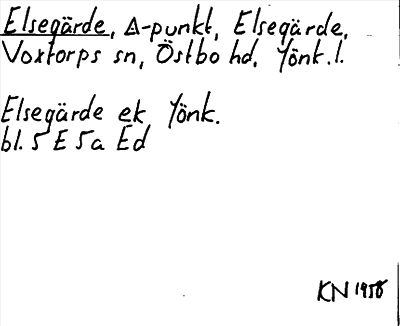 Elsegärde, Δ-punkt, Elsegärde,
Voxtorps sn, Östbo hd, Jönk.l.
Elsegärde ek Jönk.
bl. 5 E 5a Ed
KN 1958